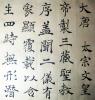 大唐太宗文皇
帝製三藏聖教
序蓋聞二儀有
象顯覆載以含
生四時無形潛